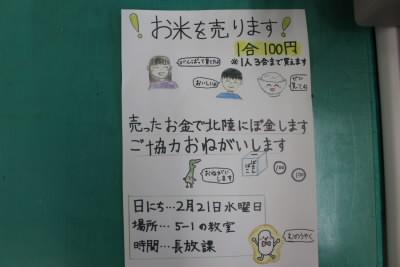 お米を売ります
1合100円
※1人3合まで買えます
がんばって育てたよ
おいしいよ
ぜひ買ってね
売ったお金で北陸にぼ金します
ご協力おねがいします
おねがいします
100
日にち…2月21日水曜日
場所…5-1の教室
時間…長放課
むのうやく